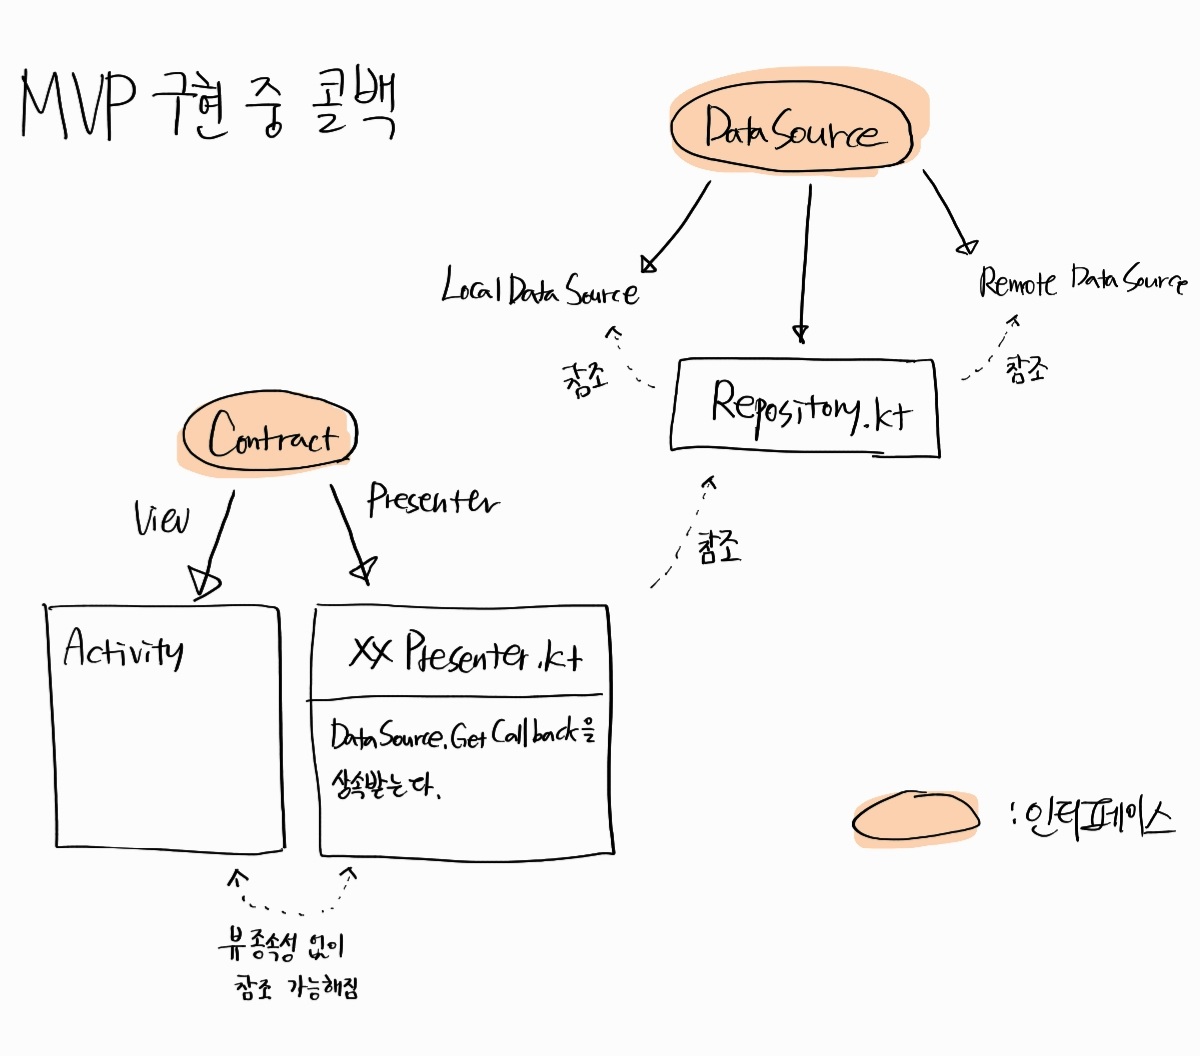 MVP 구현 중 콜백
DataSource
LocalDataSource
Remote DataSource
참조
참조
Repository.kt
Contract
View
Presenter
참조
Activity
XX Presenter.kt
DataSource.GetCallback을
상속받는다.
:인터페이스
뷰 종속성 없이
참조 가능해짐